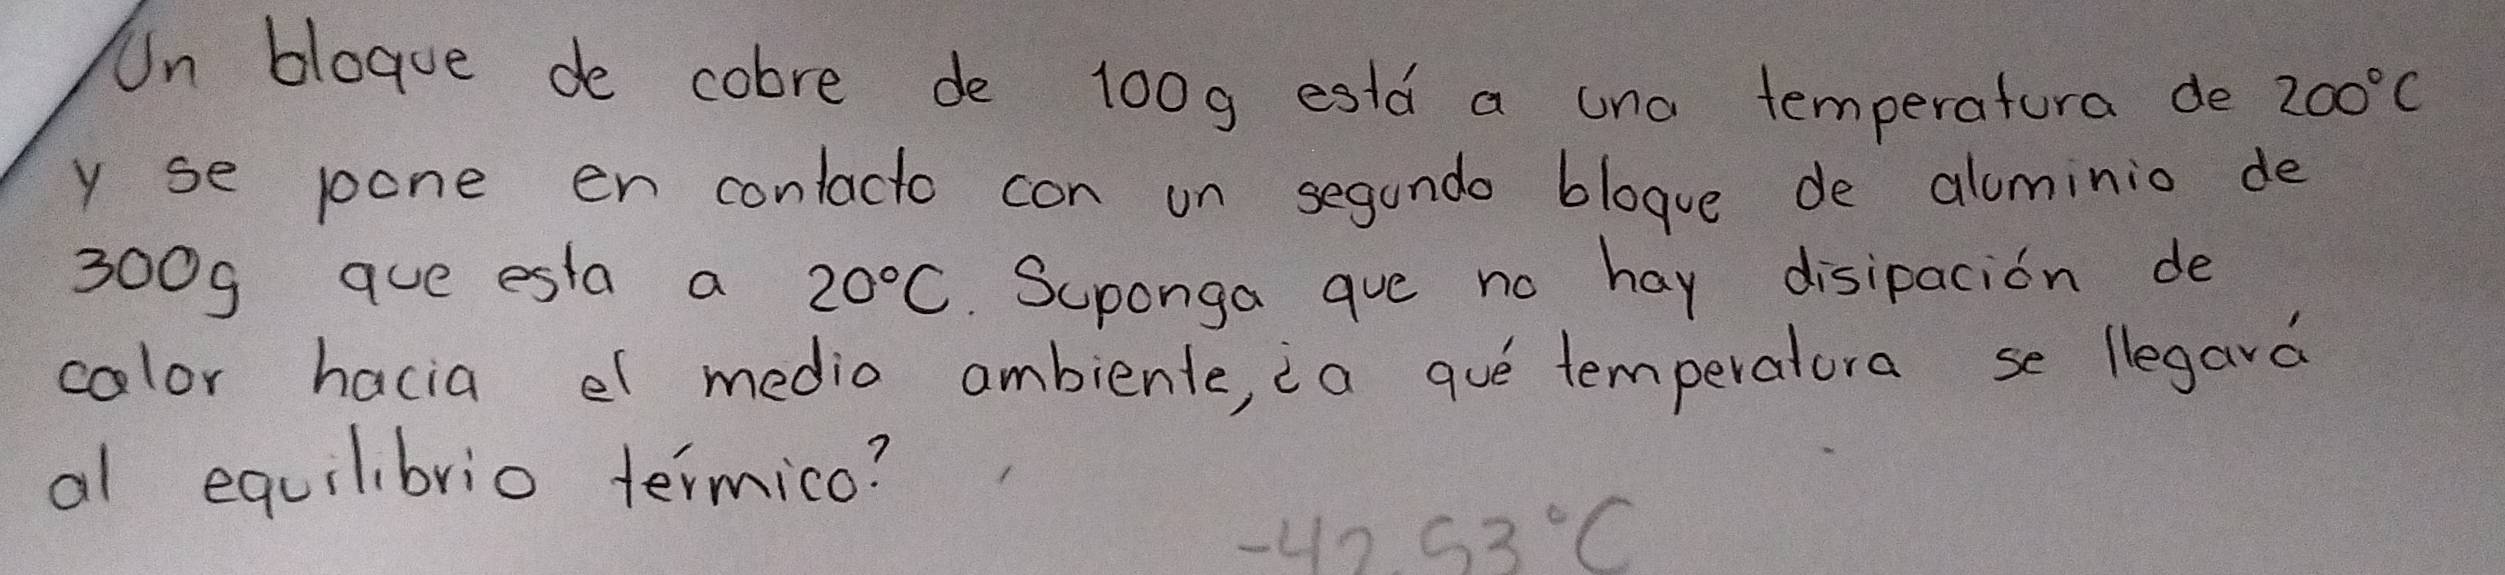 Un bloque de cobre de 100g está a una temperatura de 200°C
y se pone en contacto con un segundo bloque de aluminio de
300g que esta a 20°C. Suponga que no hay disipación de
calor hacia el medio ambiente, ¿a qué temperatura se llegará
al equilibrio térmico?
-42.53°C